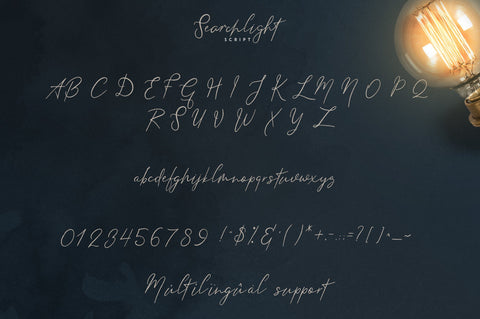 Searchlight
SCRIPT
A B C D E F G H I J K L M N O P Q
R S U V W X Y Z
abcdefghijklmnopqrstuvwxyz
0123456789 !"$%&'()*+,-.:;=?[]^_~
Múltilingûal support